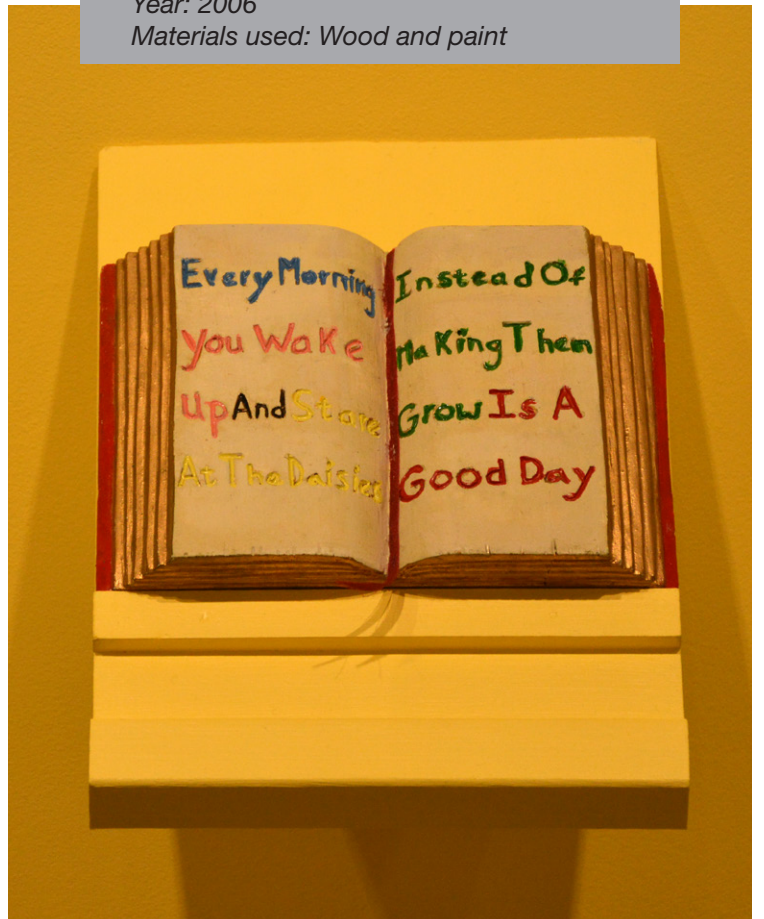 Year: 2006
Materials used: Wood and paint
Every Morning
You Wake
Up And Stare
At The Daisies
Instead Of
Making Them
Grow Is A
Good Day